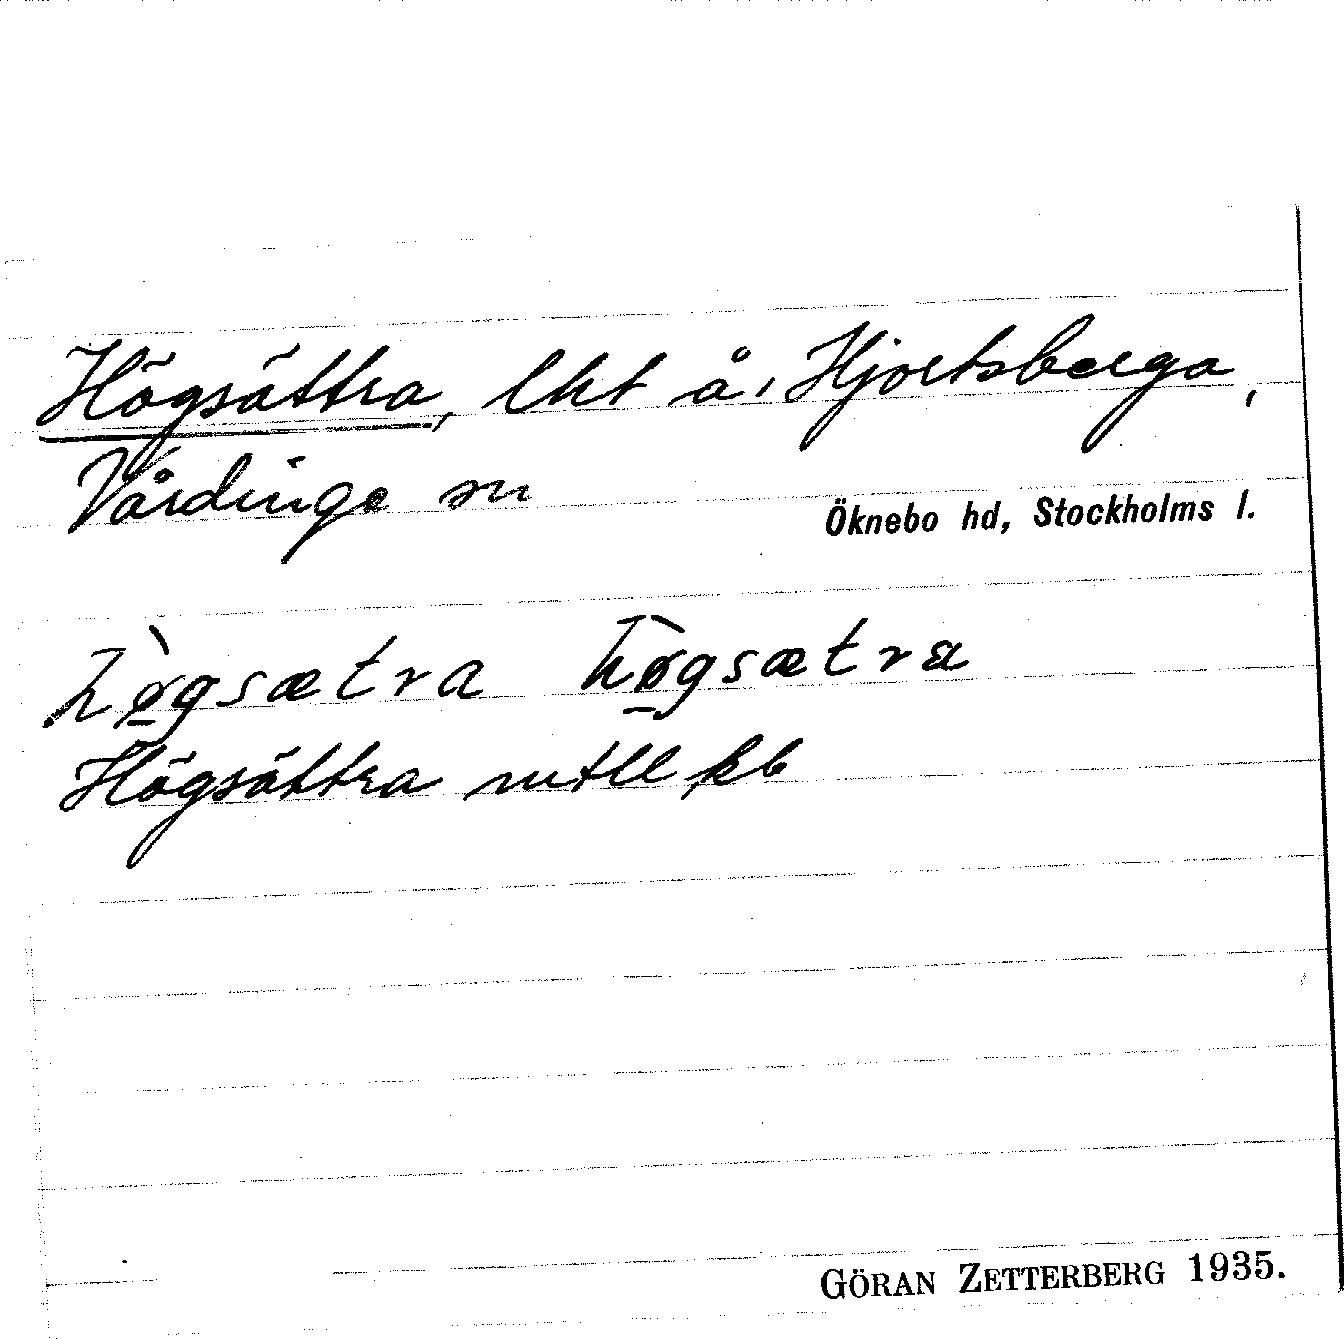 Högsättra, lht å, Hjortsberga,
Vårdinge sn
Öknebo hd, Stockholms l.
hø̀gsætra hø̀gsætra
Högsättra mtll kb
GÖRAN ZETTERBERG 1935.